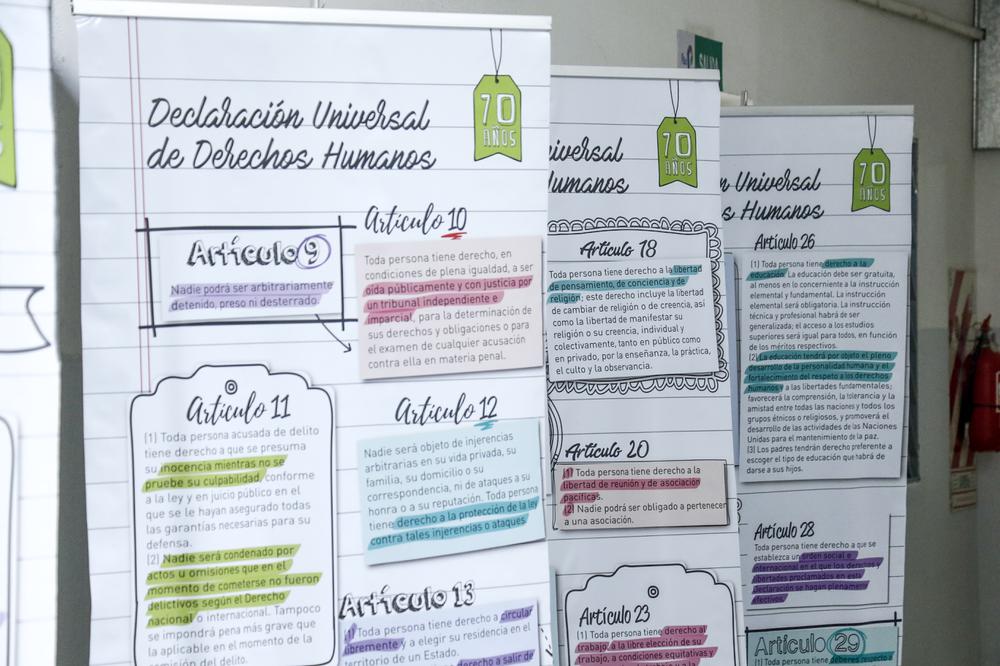 Declaración Universal
de Derechos Humanos
70
AÑOS
Artículo 9
Nadie podrá ser arbitrariamente
detenido, preso ni desterrado.
Artículo 10
Toda persona tiene derecho, en
condiciones de plena igualdad, a ser
oída públicamente y con justicia por
un tribunal independiente e
imparcial, para la determinación de
sus derechos y obligaciones o para
el examen de cualquier acusación
contra ella en materia penal.
Artículo 11
(1) Toda persona acusada de delito
tiene derecho a que se presuma
su inocencia mientras no se
pruebe su culpabilidad, conforme
a la ley y en juicio público en el
que se le hayan asegurado todas
las garantías necesarias para su
defensa.
(2) Nadie será condenado por
actos u omisiones que en el
momento de cometerse no fueron
delictivos según el Derecho
nacional o internacional. Tampoco
se impondrá pena más grave que
la aplicable en el momento de la
comisión del delito.
Artículo 12
Nadie será objeto de injerencias
arbitrarias en su vida privada, su
familia, su domicilio o su
correspondencia, ni de ataques a su
honra o a su reputación. Toda persona
tiene derecho a la protección de la ley
contra tales injerencias o ataques.
Artículo 13
(1) Toda persona tiene derecho a circular
libremente y a elegir su residencia en el
territorio de un Estado.
derecho a salir de
iversal
Humanos
70
AÑOS
Artículo 18
Toda persona tiene derecho a la libertad
de pensamiento, de conciencia y de
religión; este derecho incluye la libertad
de cambiar de religión o de creencia, así
como la libertad de manifestar su
religión o su creencia, individual y
colectivamente, tanto en público como
en privado, por la enseñanza, la práctica,
el culto y la observancia.
Artículo 20
(1) Toda persona tiene derecho a la
libertad de reunión y de asociación
pacíficas.
(2) Nadie podrá ser obligado a pertenecer
a una asociación.
Artículo 23
(1) Toda persona tiene derecho al
trabajo, a la libre elección de su
trabajo, a condiciones equitativas y
SALIDA
n Universal
s Humanos
70
AÑOS
Artículo 26
(1) Toda persona tiene derecho a la
educación. La educación debe ser gratuita,
al menos en lo concerniente a la instrucción
elemental y fundamental. La instrucción
elemental será obligatoria. La instrucción
técnica y profesional habrá de ser
generalizada; el acceso a los estudios
superiores será igual para todos, en función
de los méritos respectivos.
(2) La educación tendrá por objeto el pleno
desarrollo de la personalidad humana y el
fortalecimiento del respeto a los derechos
humanos y a las libertades fundamentales;
favorecerá la comprensión, la tolerancia y la
amistad entre todas las naciones y todos los
grupos étnicos o religiosos, y promoverá el
desarrollo de las actividades de las Naciones
Unidas para el mantenimiento de la paz.
(3) Los padres tendrán derecho preferente a
escoger el tipo de educación que habrá de
darse a sus hijos.
Artículo 28
Toda persona tiene derecho a que se
establezca un orden social e
internacional en el que los derechos y
libertades proclamados en esta
Declaración se hagan plenamente
efectivos.
Artículo 29
(1) Toda persona tiene deberes respecto a